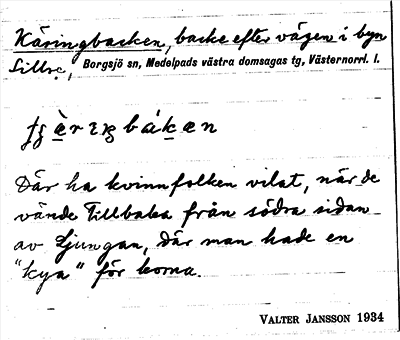 Käringbacken, backe efter vägen i byn
Sillre, Borgsjö sn, Medelpads västra domsagas tg, Västernorrl. l.
Där ha kvinnfolken vilat, när de
vände tillbaka från södra sidan
av Ljungan, där man hade en
"kya" för korna.
VALTER JANSSON 1934